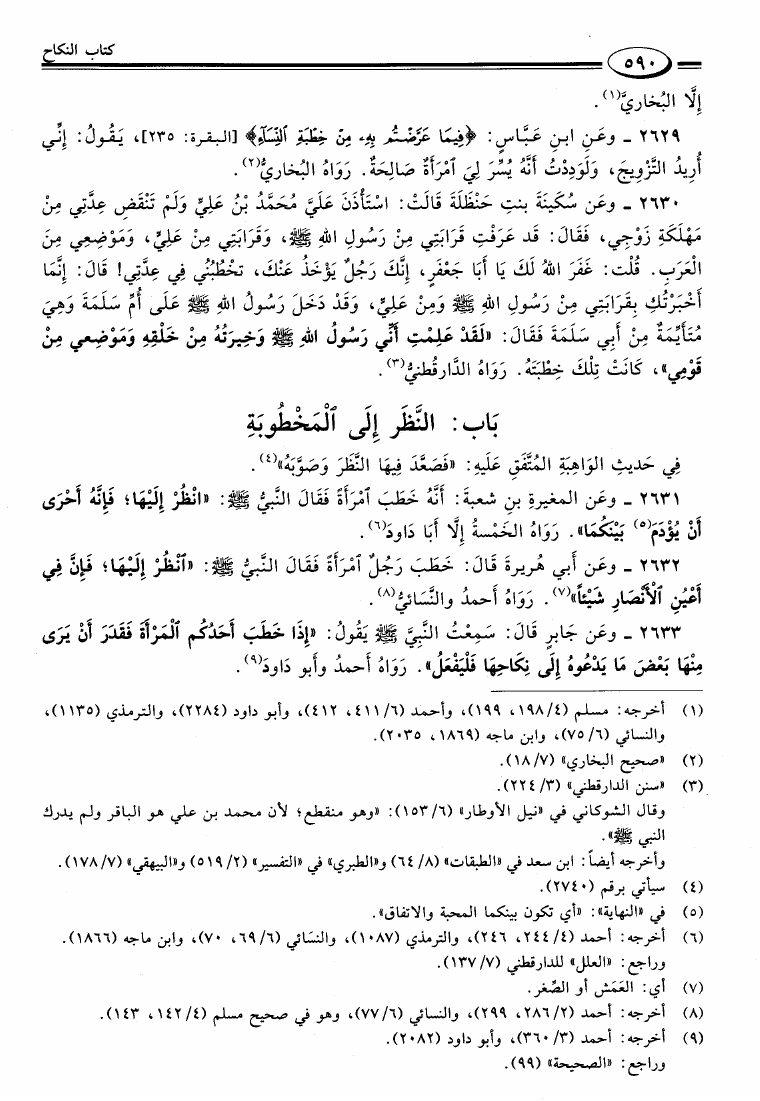 كتاب النكاح
٥٩٠
إِلَّا البُخاريَّ(١).
٢٦٢٩ ـ وعَنِ ابنِ عَبَّاسٍ: ﴿فِيمَا عَرَّضْتُم بِهِۦ مِنْ خِطْبَةِ ٱلنِّسَآءِ﴾ [البقرة: ٢٣٥]، يَقُولُ: إِنِّي
أُرِيدُ التَّزْوِيجَ، وَلَوَدِدْتُ أَنَّهُ يُسِّرَ لِيَ ٱمْرَأَةٌ صَالِحَةٌ. رَوَاهُ البُخاريُّ(٢).
٢٦٣٠ ـ وعَن سُكَينَةَ بنتِ حَنظَلَةَ قَالَتْ: اسْتَأْذَنَ عَلَيَّ مُحَمَّدُ بْنُ عَلِيٍّ وَلَمْ تَنْقَضِ عِدَّتِي مِنْ
مَهْلَكَةِ زَوْجِي، فَقَالَ: قَد عَرَفْتِ قَرَابَتِي مِنْ رَسُولِ اللهِ ﷺ، وَقَرَابَتِي مِنْ عَلِيٍّ، وَمَوْضِعِي مِنَ
الْعَرَبِ. قُلْت: غَفَرَ اللهُ لَكَ يَا أَبَا جَعْفَرٍ، إِنَّكَ رَجُلٌ يُؤْخَذُ عَنْكَ، تَخْطُبُنِي فِي عِدَّتِي! قَالَ: إِنَّمَا
أَخْبَرْتُكِ بِقَرَابَتِي مِنْ رَسُولِ اللهِ ﷺ وَمِنْ عَلِيٍّ، وَقَدْ دَخَلَ رَسُولُ اللهِ ﷺ عَلَى أُمِّ سَلَمَةَ وَهِيَ
مُتَأَيِّمَةٌ مِنْ أَبِي سَلَمَةَ فَقَالَ: «لَقَدْ عَلِمْتِ أَنِّي رَسُولُ اللهِ ﷺ وَخِيرَتُهُ مِنْ خَلْقِهِ وَمَوْضِعِي مِنْ
قَوْمِي»، كَانَتْ تِلْكَ خِطْبَتَهُ. رَوَاهُ الدَّارقُطنيُّ(٣).
بَاب: النَّظَرِ إِلَى ٱلْمَخْطُوبَةِ
فِي حَديثِ الوَاهِبَةِ المُتَّفَقِ عَلَيهِ: «فَصَعَّدَ فِيهَا النَّظَرَ وَصَوَّبَهُ»(٤).
٢٦٣١ ـ وعَن المغيرةِ بنِ شعبةَ: أَنَّهُ خَطَبَ ٱمْرَأَةً فَقَالَ النَّبِيُّ ﷺ: «انْظُرْ إِلَيْهَا؛ فَإِنَّهُ أَحْرَى
أَنْ يُؤْدَمَ(٥) بَيْنَكُمَا». رَوَاهُ الخَمْسةُ إِلَّا أَبَا دَاودَ(٦).
٢٦٣٢ ـ وعَن أبي هُريرةَ قَالَ: خَطَبَ رَجُلٌ ٱمْرَأَةً فَقَالَ النَّبِيُّ ﷺ: «ٱنْظُرْ إِلَيْهَا؛ فَإِنَّ فِي
أَعْيُنِ ٱلْأَنْصَارِ شَيْئاً»(٧). رَوَاهُ أَحمدُ والنَّسَائيُّ(٨).
٢٦٣٣ ـ وعَن جَابرٍ قَالَ: سَمِعْتُ النَّبِيَّ ﷺ يَقُولُ: «إِذَا خَطَبَ أَحَدُكُم ٱلْمَرْأَةَ فَقَدَرَ أَنْ يَرَى
مِنْهَا بَعْضَ مَا يَدْعُوهُ إِلَى نِكَاحِهَا فَلْيَفْعَلْ». رَوَاهُ أَحمدُ وأبو دَاودَ(٩).
(١) أخرجه: مسلم (٤/ ١٩٨، ١٩٩)، وأحمد (٦/ ٤١١، ٤١٢)، وأبو داود (٢٢٨٤)، والترمذي (١١٣٥)،
والنسائي (٦/ ٧٥)، وابن ماجه (١٨٦٩، ٢٠٣٥).
(٢) «صحيح البخاري» (٧/ ١٨).
(٣) «سنن الدارقطني» (٣/ ٢٢٤).
وقال الشوكاني في «نيل الأوطار» (٦/ ١٥٣): «وهو منقطع؛ لأن محمد بن علي هو الباقر ولم يدرك
النبي ﷺ».
وأخرجه أيضاً: ابن سعد في «الطبقات» (٨/ ٦٤) و«الطبري» في «التفسير» (٢/ ٥١٩) و«البيهقي» (٧/ ١٧٨).
(٤) سيأتي برقم (٢٧٤٠).
(٥) في «النهاية»: «أي تكون بينكما المحبة والاتفاق».
(٦) أخرجه: أحمد (٤/ ٢٤٤، ٢٤٦)، والترمذي (١٠٨٧)، والنسَائي (٦/ ٦٩، ٧٠)، وابن ماجه (١٨٦٦).
وراجع: «العلل» للدارقطني (٧/ ١٣٧).
(٧) أي: العَمَش أو الصِّغر.
(٨) أخرجه: أحمد (٢/ ٢٨٦، ٢٩٩)، والنسائي (٦/ ٧٧)، وهو في صحيح مسلم (٤/ ١٤٢، ١٤٣).
(٩) أخرجه: أحمد (٣/ ٣٦٠)، وأبو داود (٢٠٨٢).
وراجع: «الصحيحة» (٩٩).